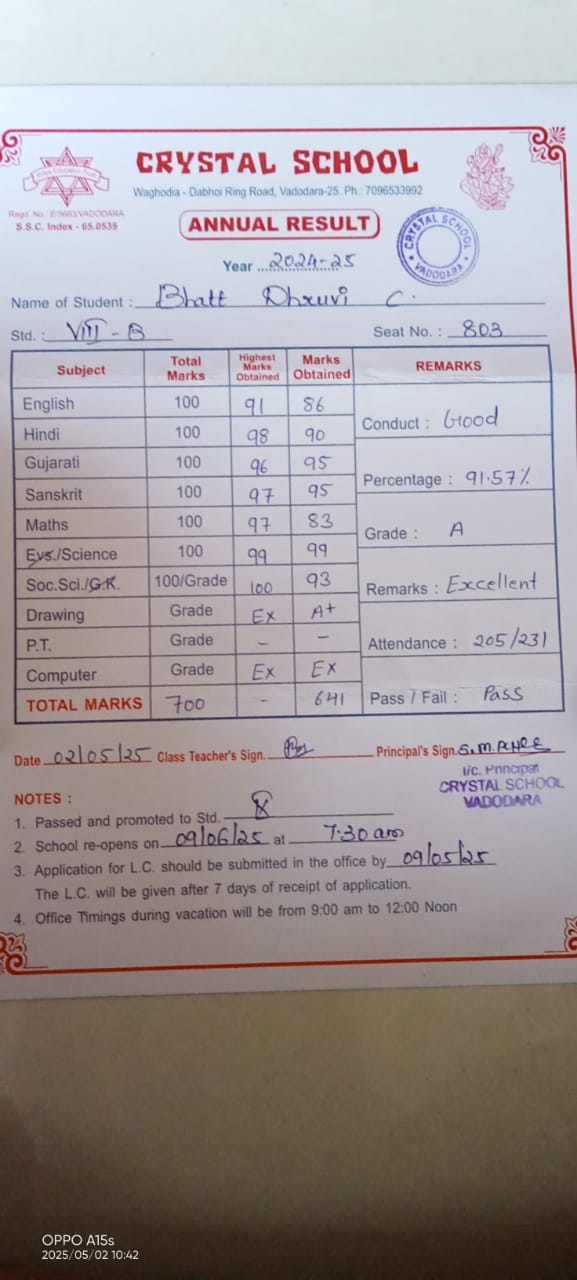 Vidya Education Trust
CRYSTAL SCHOOL
Waghodia - Dabhoi Ring Road, Vadodara-25. Ph.: 7096533992
Regd. No. E/5683/VADODARA
S.S.C. Index - 65.0535
ANNUAL RESULT
CRYSTAL SCHOOL
VADODARA
Year 2024-25
Name of Student : Bhatt Dhruvi C.
Std. : VIII - B Seat No. : 803
Subject Total Marks Highest Marks Obtained Marks Obtained REMARKS
English 100 91 86
Conduct : Good
Hindi 100 98 90
Gujarati 100 96 95
Percentage : 91.57%
Sanskrit 100 97 95
Maths 100 97 83
Grade : A
Evs./Science 100 99 99
Soc.Sci./G.K. 100/Grade 100 93
Remarks : Excellent
Drawing Grade Ex A+
P.T. Grade - -
Attendance : 205/231
Computer Grade Ex Ex
TOTAL MARKS 700 - 641
Pass / Fail : Pass
Date 02/05/25 Class Teacher's Sign. Principal's Sign.
I/c. Principal
CRYSTAL SCHOOL
VADODARA
NOTES :
1. Passed and promoted to Std.
2. School re-opens on 09/06/25 at 7:30 am
3. Application for L.C. should be submitted in the office by 09/05/25
The L.C. will be given after 7 days of receipt of application.
4. Office Timings during vacation will be from 9:00 am to 12:00 Noon
OPPO A15s
2025/05/02 10:42